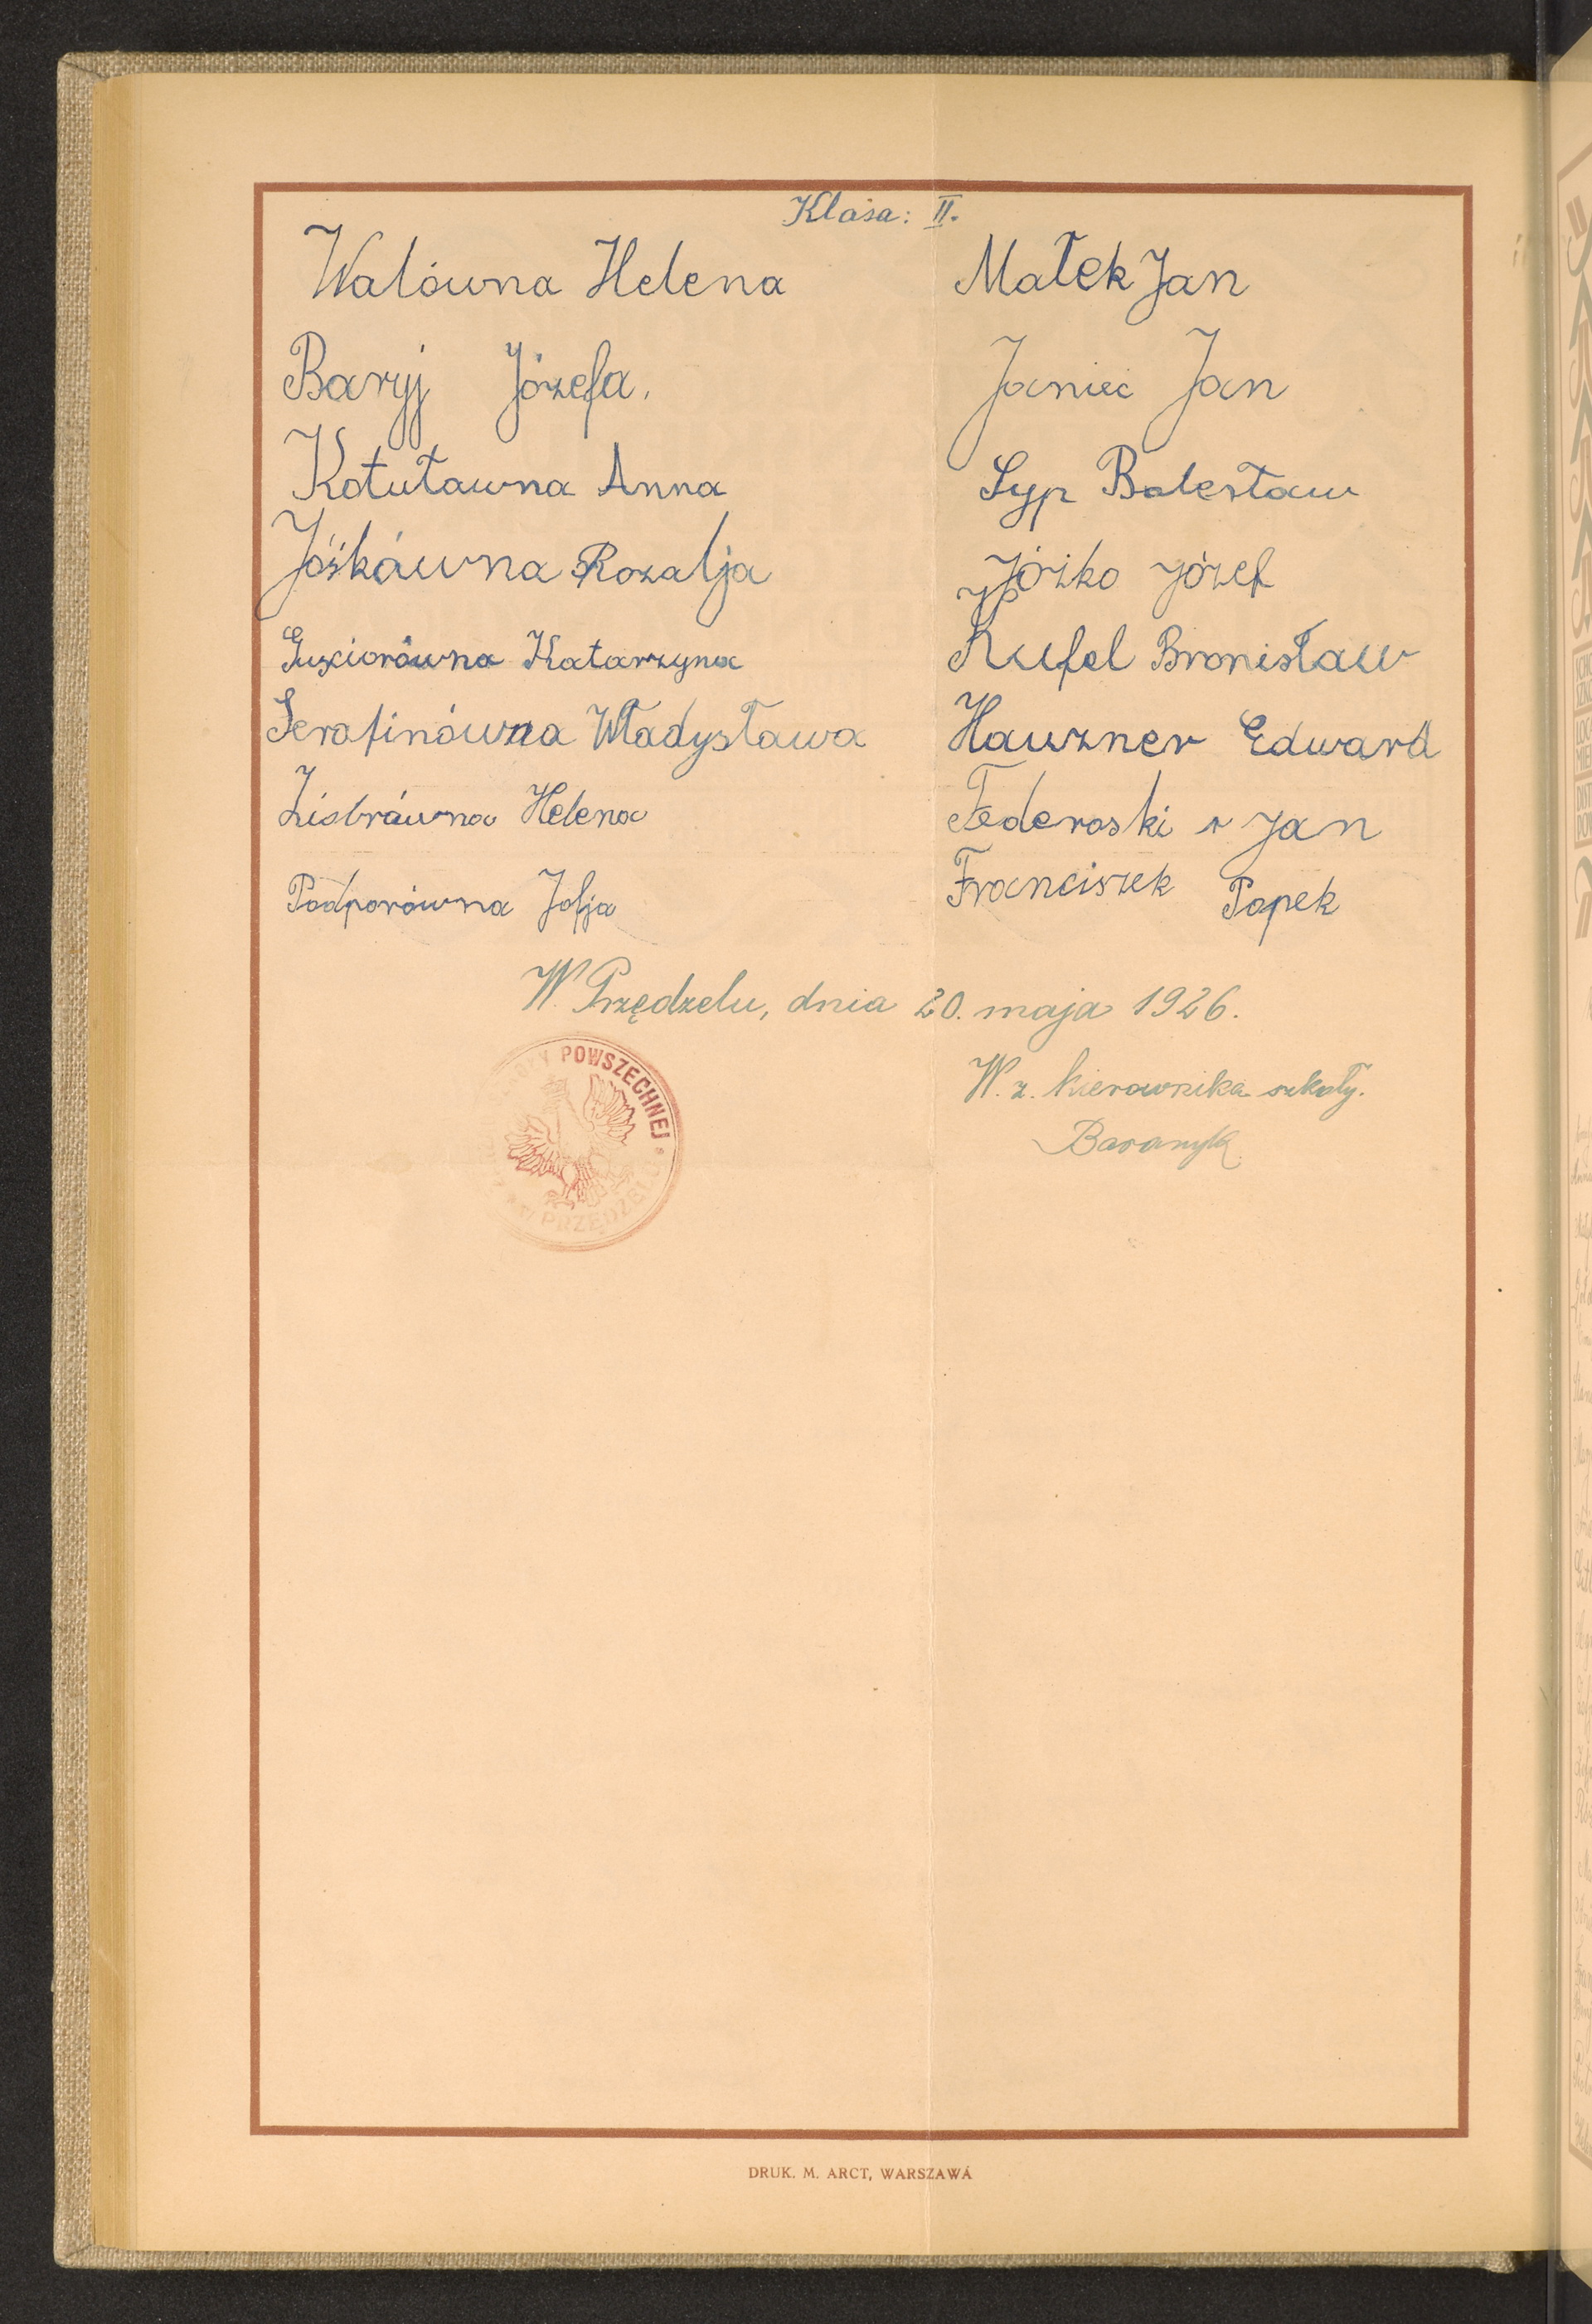 Klasa: II.
Walówna Helena
Baryj Józefa.
Kotuławna Anna
Jóśkówna Rozalja
Guziorówna Katarzyna
Serafinówna Władysława
Zisbrówna Helena
Podporówna Zofja
Małek Jan
Janiec Jan
Syp Bolesław
Jóżko Józef
Kufel Bronisław
Hauzner Edward
Federoski Jan
Franciszek Popek
W Przędzelu, dnia 20. maja 1926.
W. z. kierownika szkoły.
POWSZECHNEJ
PRZĘDZELU
DRUK. M. ARCT, WARSZAWA